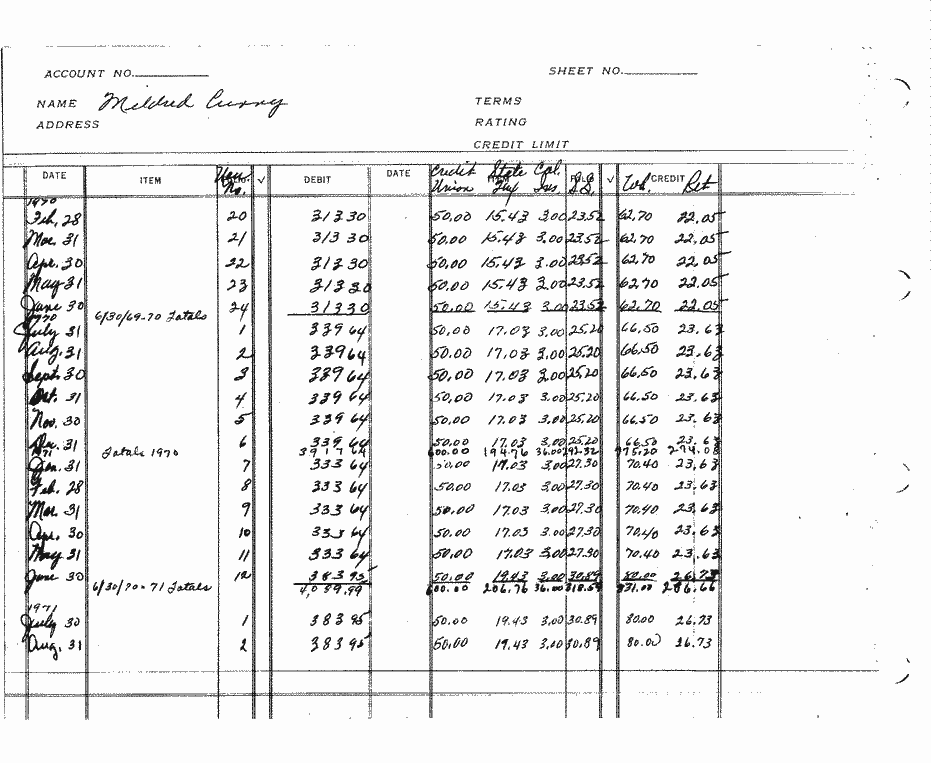 ACCOUNT NO. SHEET NO.
NAME Mildred Curry TERMS
ADDRESS RATING
CREDIT LIMIT
DATE ITEM No. ✓ DEBIT DATE Credit Union State Tax Cal. Ins ✓ Wh. CREDIT Ret
1970
Feb, 28 20 313 30 50.00 15.43 3.00 23.52 62.70 22.05
Mar. 31 21 313 30 50.00 15.43 3.00 23.52 62.70 22.05
Apr. 30 22 313 30 50.00 15.43 3.00 23.52 62.70 22.05
May 31 23 313 30 50.00 15.43 3.00 23.52 62.70 22.05
June 30 24 313 30 50.00 15.43 3.00 23.52 62.70 22.05
1970 6/30/69-70 Totals
July 31 1 339 64 50.00 17.03 3.00 25.20 66.50 23.63
Aug. 31 2 339 64 50.00 17.03 3.00 25.20 66.50 23.63
Sept. 30 3 339 64 50.00 17.03 3.00 25.20 66.50 23.63
Oct. 31 4 339 64 50.00 17.03 3.00 25.20 66.50 23.63
Nov. 30 5 339 64 50.00 17.03 3.00 25.20 66.50 23.63
Dec. 31 6 339 64 50.00 17.03 3.00 25.20 66.50 23.63
1971 Totals 1970 3917 64 600.00 194.76 36.00 292.32 775.20 274.08
Jan. 31 7 333 64 50.00 17.03 3.00 27.30 70.40 23.63
Feb. 28 8 333 64 50.00 17.03 3.00 27.30 70.40 23.63
Mar. 31 9 333 64 50.00 17.03 3.00 27.30 70.40 23.63
Apr. 30 10 333 64 50.00 17.03 3.00 27.30 70.40 23.63
May 31 11 333 64 50.00 17.03 3.00 27.30 70.40 23.63
June 30 12 383 95 50.00 19.43 3.00 30.89 80.00 26.73
6/30/70-71 Totals 4,089.99 600.00 206.76 36.00 318.59 831.00 286.66
1971
July 30 1 383 95 50.00 19.43 3.00 30.89 80.00 26.73
Aug. 31 2 383 95 50.00 19.43 3.00 30.89 80.00 26.73